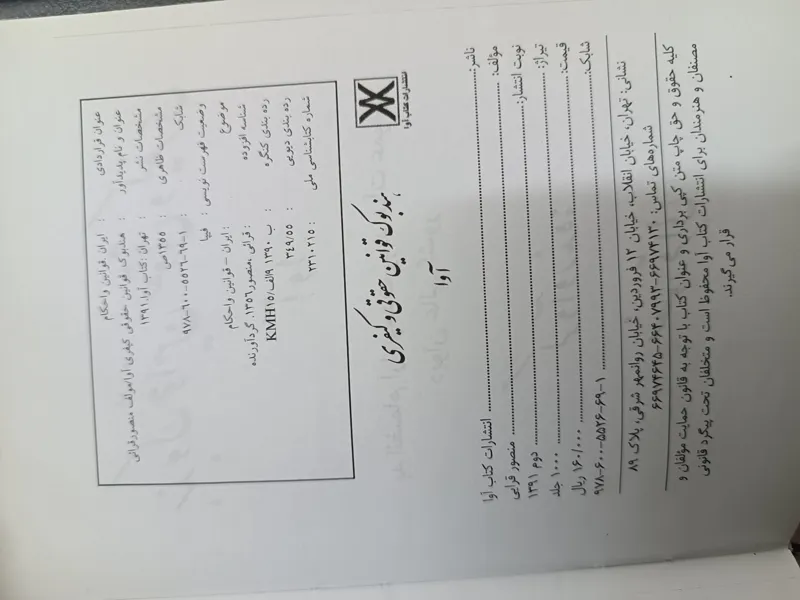 عنوان قراردادی : ایران. قوانین واحکام
عنوان و نام پدیدآور : هندبوک قوانین حقوقی کیفری آوا/مولف منصورقرائی
مشخصات نشر : تهران :کتاب آوا،۱۳۹۱
مشخصات ظاهری : ۱۳۵۵ص
شابک : ۹۷۸-۶۰۰-۵۵۲۶-۶۹-۱
وضعیت فهرست نویسی : فیپا
موضوع : ایران – قوانین واحکام
شناسه افزوده : قرائی ،منصور،۱۳۵۶، گردآورنده
رده بندی کنگره : ۱۳۹۰ ۹الف/۱۵KMH
رده بندی دیویی : ۳۴۹/۵۵
شماره کتابشناسی ملی : ۲۳۱۰۲۱۵
انتشارات کتاب آوا
هندبوک قوانین حقوقی و کیفری
آوا
ناشر: انتشارات کتاب آوا
مؤلف: منصور قرایی
نوبت انتشار: دوم ۱۳۹۱
تیراژ: ۱۰۰۰ جلد
قیمت: ۱۶۰/۰۰۰ ریال
شابک: ۹۷۸-۶۰۰-۵۵۲۶-۶۹-۱
نشانی: تهران، خیابان انقلاب، خیابان ۱۲ فروردین، خیابان روانمهر شرقی، پلاک ۸۹
شماره‌های تماس: ۶۶۹۷۴۱۳۰-۶۶۴۰۷۹۹۳-۶۶۹۷۴۶۴۵
کلیه حقوق و حق چاپ متن کپی برداری و عنوان کتاب با توجه به قانون حمایت مؤلفان و
مصنفان و هنرمندان برای انتشارات کتاب آوا محفوظ است و متخلفان تحت پیگرد قانونی
قرار می گیرند.